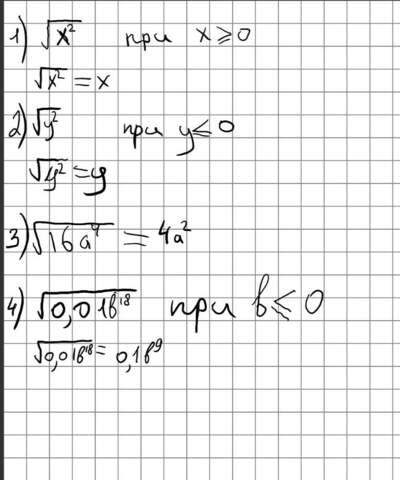 1) √x² при x ≥ 0
√x² = x
2) √y² при y ≤ 0
√y² = y
3) √16a⁴ = 4a²
4) √0,01b¹⁸ при b ≤ 0
√0,01b¹⁸ = 0,1b⁹